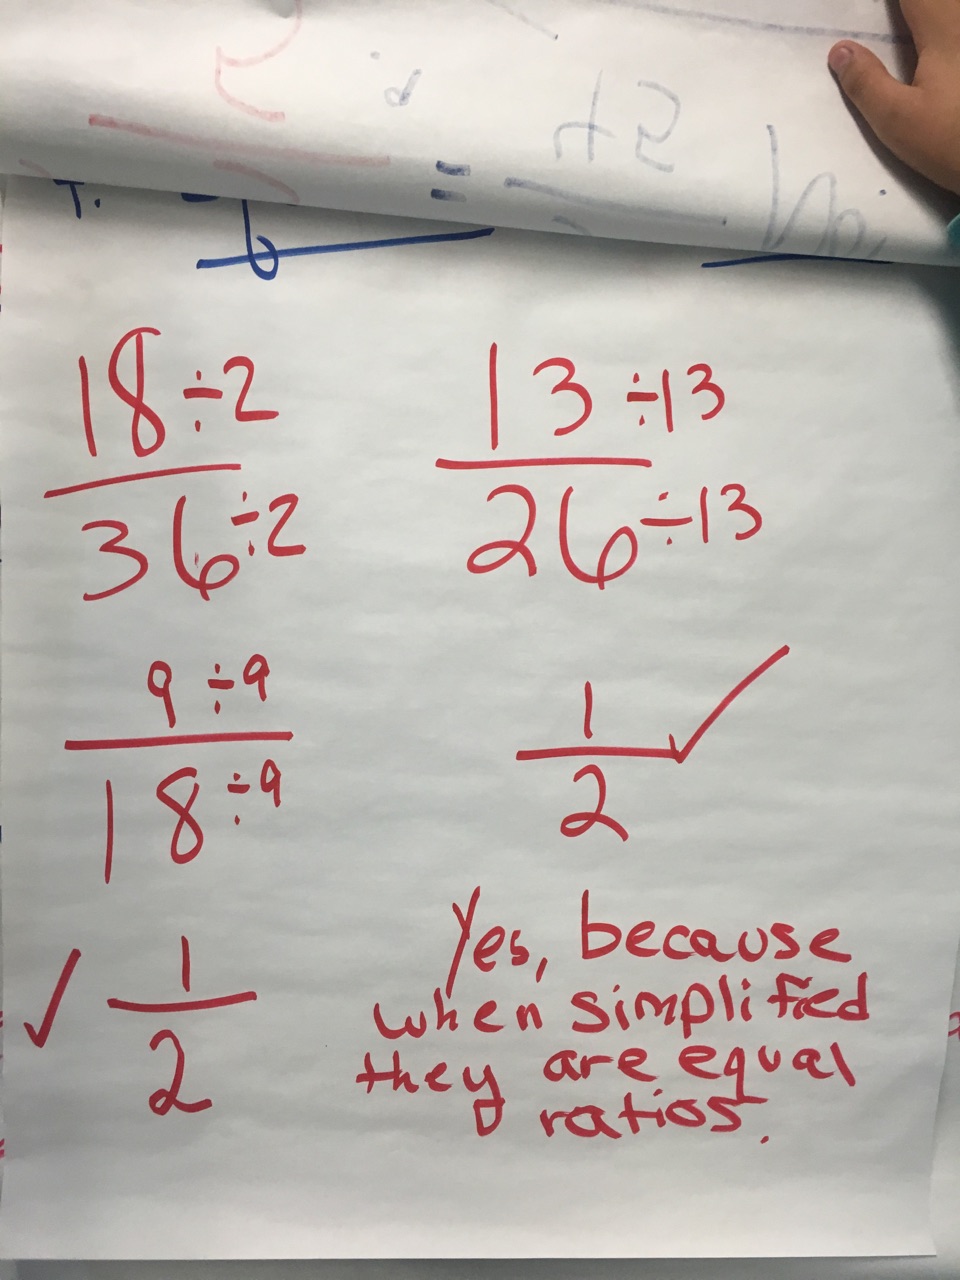 18 ÷2
36 ÷2
13 ÷13
26 ÷13
9 ÷9
18 ÷9
1
2 
✓
✓ 1
2
Yes, because
when simplified
they are equal
ratios.